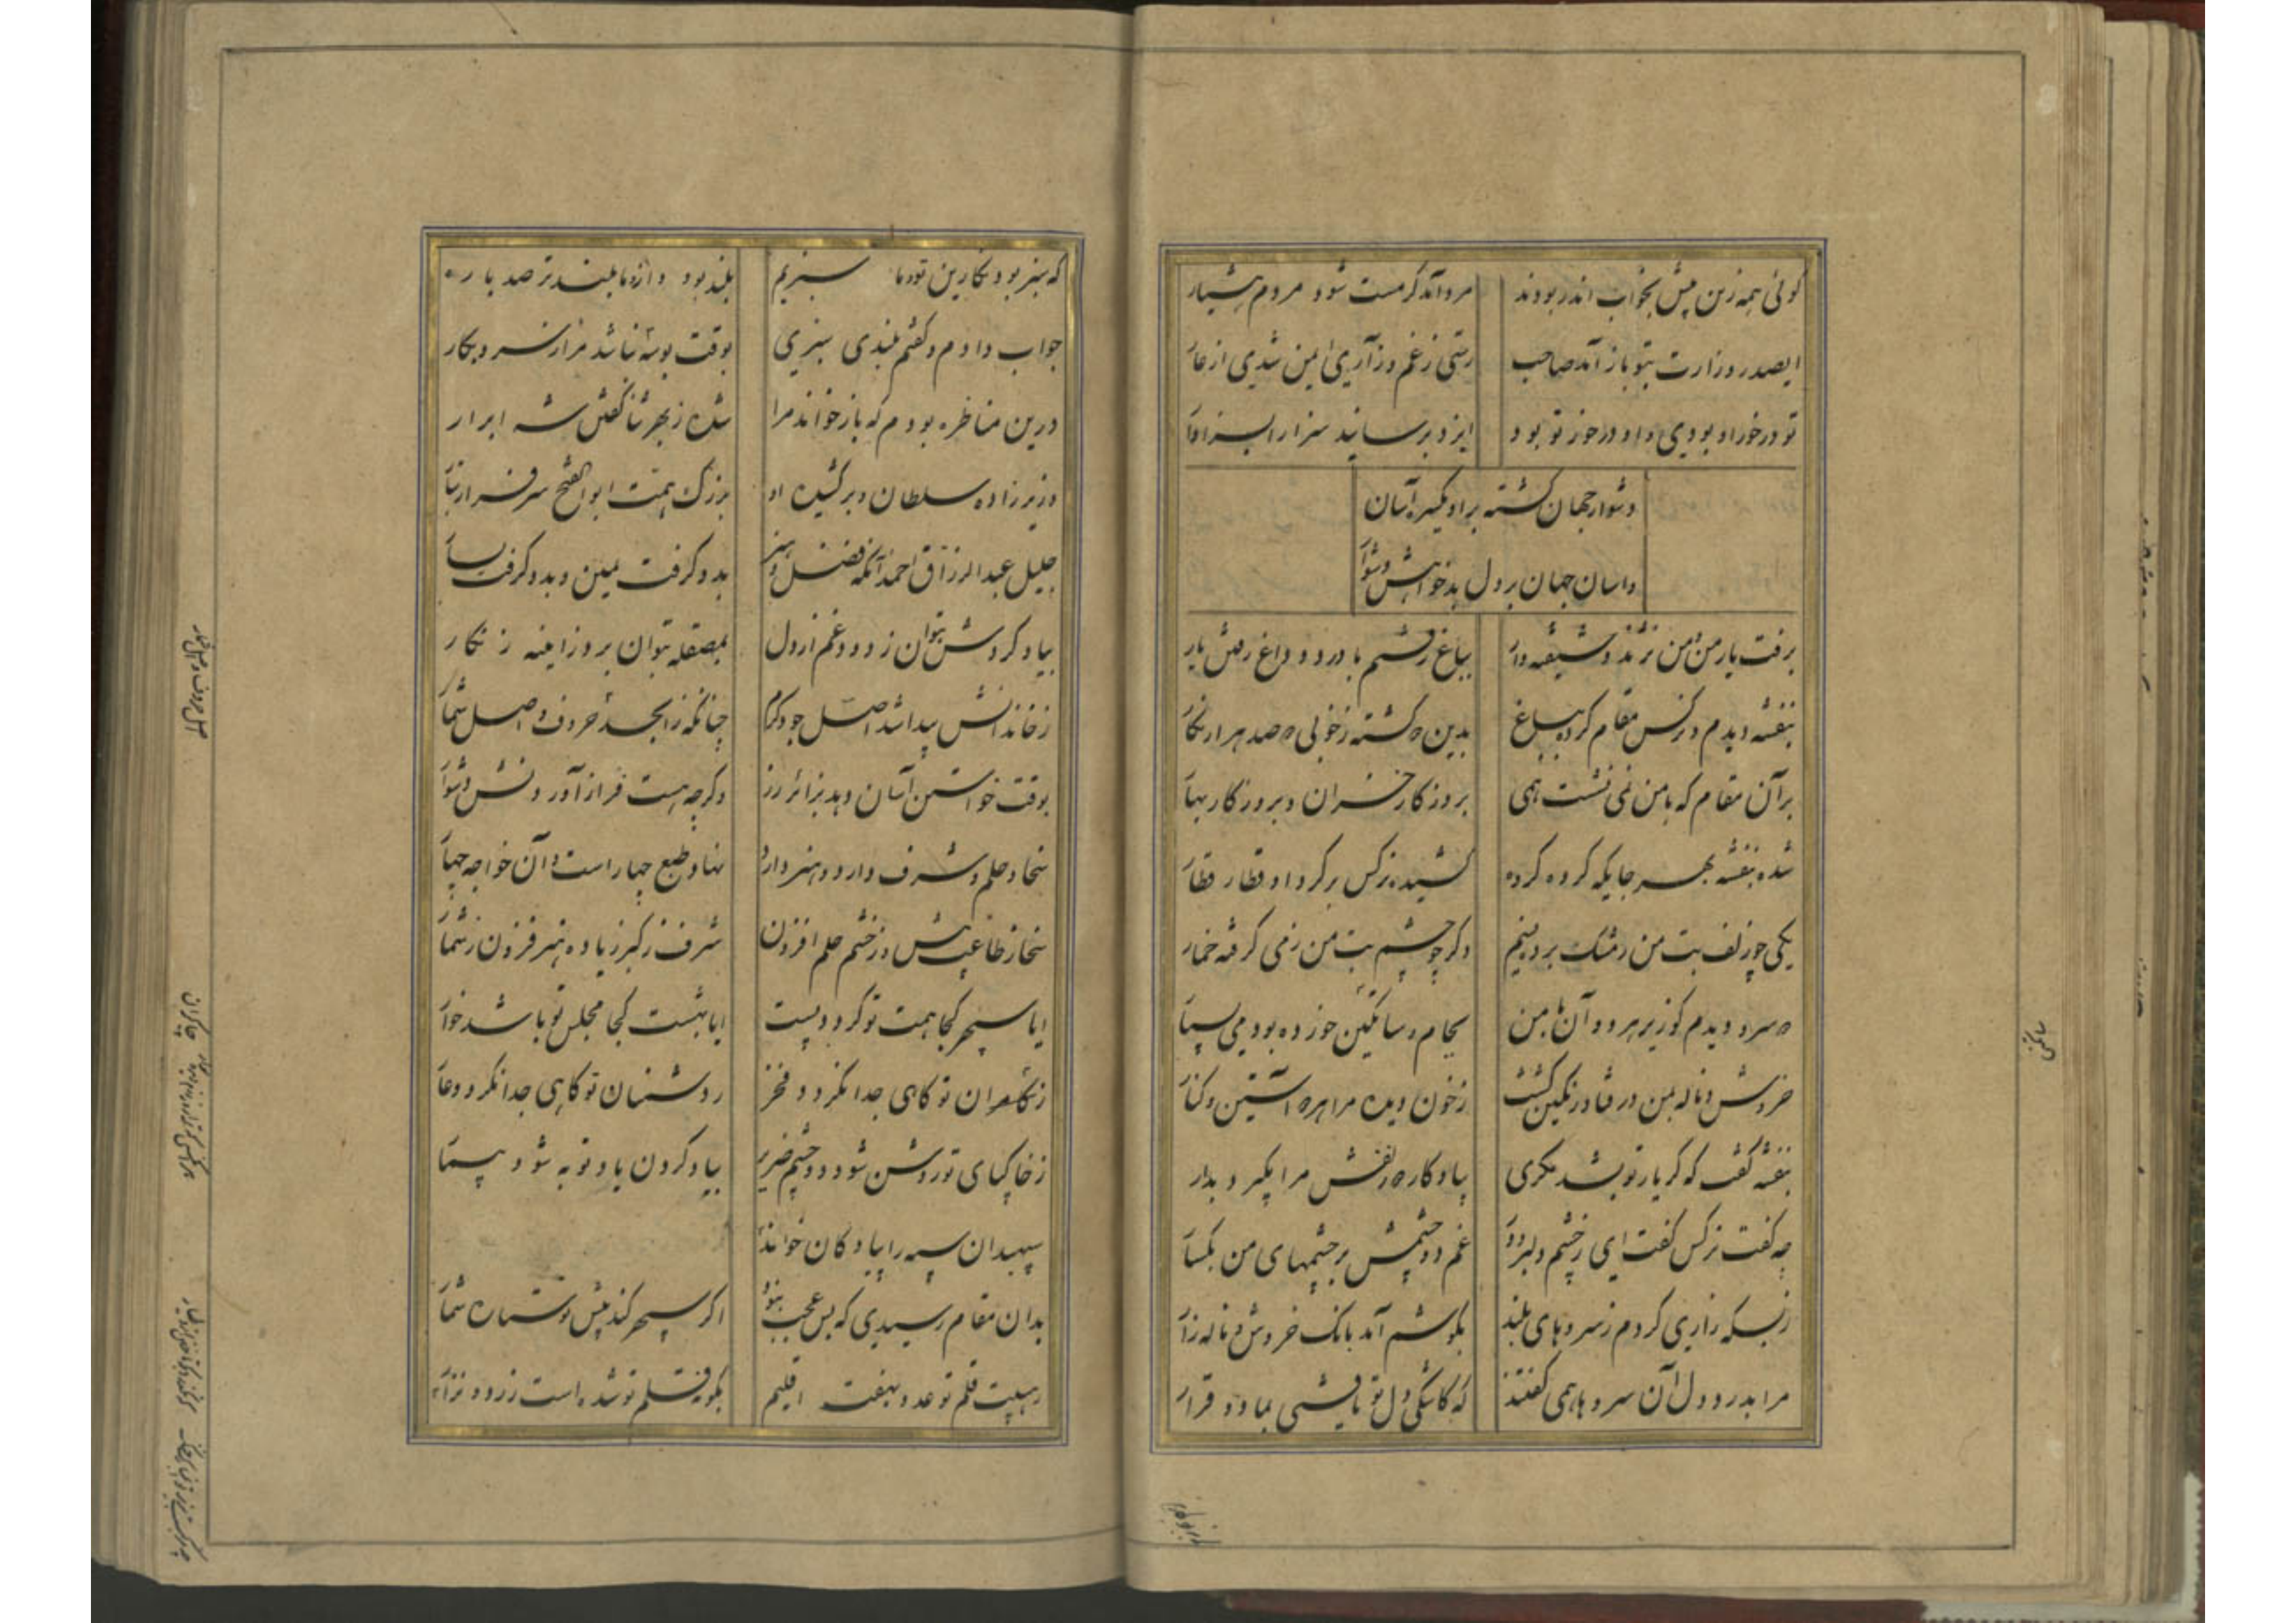 گوئی همه زین پیش بخواب اندر بودند
مرد آنکه گر مست شود مردم هشیار
ایصدر وزارت بتو باز آمد صاحب
رستی ز غم و زاری ایمن شدی از عار
تو درخور او بودی و او درخور تو بود
ایزد برسانید سزا را بسزاوار
دشوار جهان گشته بر او یکسره آسان
و اسان جهان بر دل بدخواهش دشوار
برفت یار من و من نژند و شیفته وار
بباغ رفتم با درد و داغ رفتن یار
بنفشه دیدم و نرگس مقام کرده بباغ
بدین ده گشته ز خوبی ده صد هزار نگار
بر آن مقام که با من نمی نشست همی
بروزگار خزان و بروزگار بهار
شده بنفشه بهر جایگه گروه گروه
کشیده نرگس بر گرد او قطار قطار
یکی چو زلف بت من ز مشک برده نسیم
دگر چو چشم بت من ز می گرفته خمار
ده سرو دیدم کو زیر هر دو آن با من
بجام و ساتگین خورده بود می بسیار
خروش و ناله بمن در فتاد و رنگین گشت
ز خون دیده مرا هر ده آستین و کنار
بنفشه گفت که گر یار تو بشد مگری
بیادگار ده زلفش مرا بگیر و بدار
چه گفت نرگس گفت ای ز چشم دلبر دور
غم دو چشمش بر چشمهای من بگسار
ز بسکه زاری کردم ز سروهای بلند
بگوشم آمد بانگ خروش و ناله زار
مرا بدرد دل آن سروها همی گفتند
که کاشکی دل تو یافتی بما دو قرار
که سبز بود نگارین تو و ما سبزیم
بلند بود و ازو ما بلندتر صد بار
جواب دادم و گفتم بلندی و سبزی
بوقت بوسه نباشد مرا ز سرو بکار
درین مناظره بودم که باز خواند مرا
شده ز بحر ثنا گفتن شه ابرار
وزیرزاده سلطان و برکشیده او
بزرگ همت ابوالفتح سرفراز تبار
جلیل عبدالرزاق احمد آنکه فضل و هنر
بدو گرفت یمین و بدو گرفت یسار
بیاد کردنش بتوان زدود غم از دل
بمصقله بتوان برد ز اینه زنگار
ز خاندانش پیدا شد اصل جود و کرم
چنانکه ز ابجد حروف و اصل شمار
بوقت خواستن آسان دهد بزائر زر
وگرچه هست فراز آوردنش دشوار
سخا و حلم و شرف دارد و هنر دارد
نهاد و طبع چهار است و آن خواجه چهار
سخا ز طاعت بیش و ز خشم حلم افزون
شرف ز کبر زیاده هنر فزون ز شمار
ایا سپهر کجا همت تو گردد پست
ایا بهشت کجا مجلس تو باشد خوار
ز چاکران تو گاهی جدا نگردد فخر
ز دشمنان تو گاهی جدا نگردد عار
ز خاکپای تو روشن شود دو چشم ضریر
بیاد کردن یاد تو به شود بیمار
سپهبدان سپه را پیادگان خوانند
بدان مقام رسیدی که بس عجب نبود
اگر سپهر کند پیش تو ستاره شمار
ز هیبت قلم تو عدو بهفت اقلیم
بگونه قلم تو شده است زرد و نزار